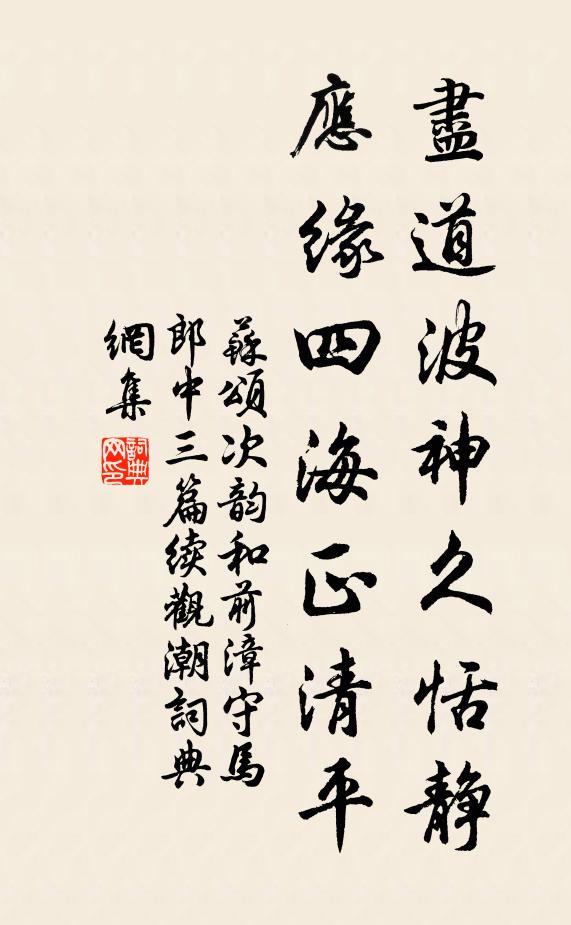 盡道波神久恬静
應緣四海正清平
蘇頌次韵和前漳守馬
郎中三篇续觀潮詞典
網集
詞典网印